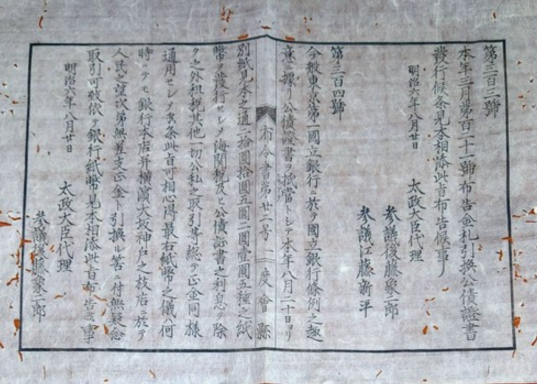 第三百三號
本年三月第百二十一號布告金札引換公債證書
發行候条見本相添此旨布告候事
明治六年八月廿日
太政大臣代理
参議後藤象二郎
参議江藤新平
第三百四號
今般東京第一國立銀行ニ於テ國立銀行條例之趣
意ニ據リ公債證書ヲ抵當トシテ本年八月二十日ヨリ
布令書第廿二号
度會縣
別紙見本之通二拾圓拾圓五圓二圓壹圓五種之紙
幣ヲ發行セシメ海關税及ヒ公債証書之利息ヲ除
クノ外租税其他一切公私之取引等総テ正金同様
通用セシメ候条此旨可相心得最右紙幣之儀ハ何
時ニテモ銀行本店并横濱大坂神戸之枝店ニ於テ
人民之望次第無差支正金ト引換之筈ニ付無疑念
取引可致依テ銀行紙幣見本相添此旨布告候事
明治六年八月廿日
太政大臣代理
参議後藤象二郎